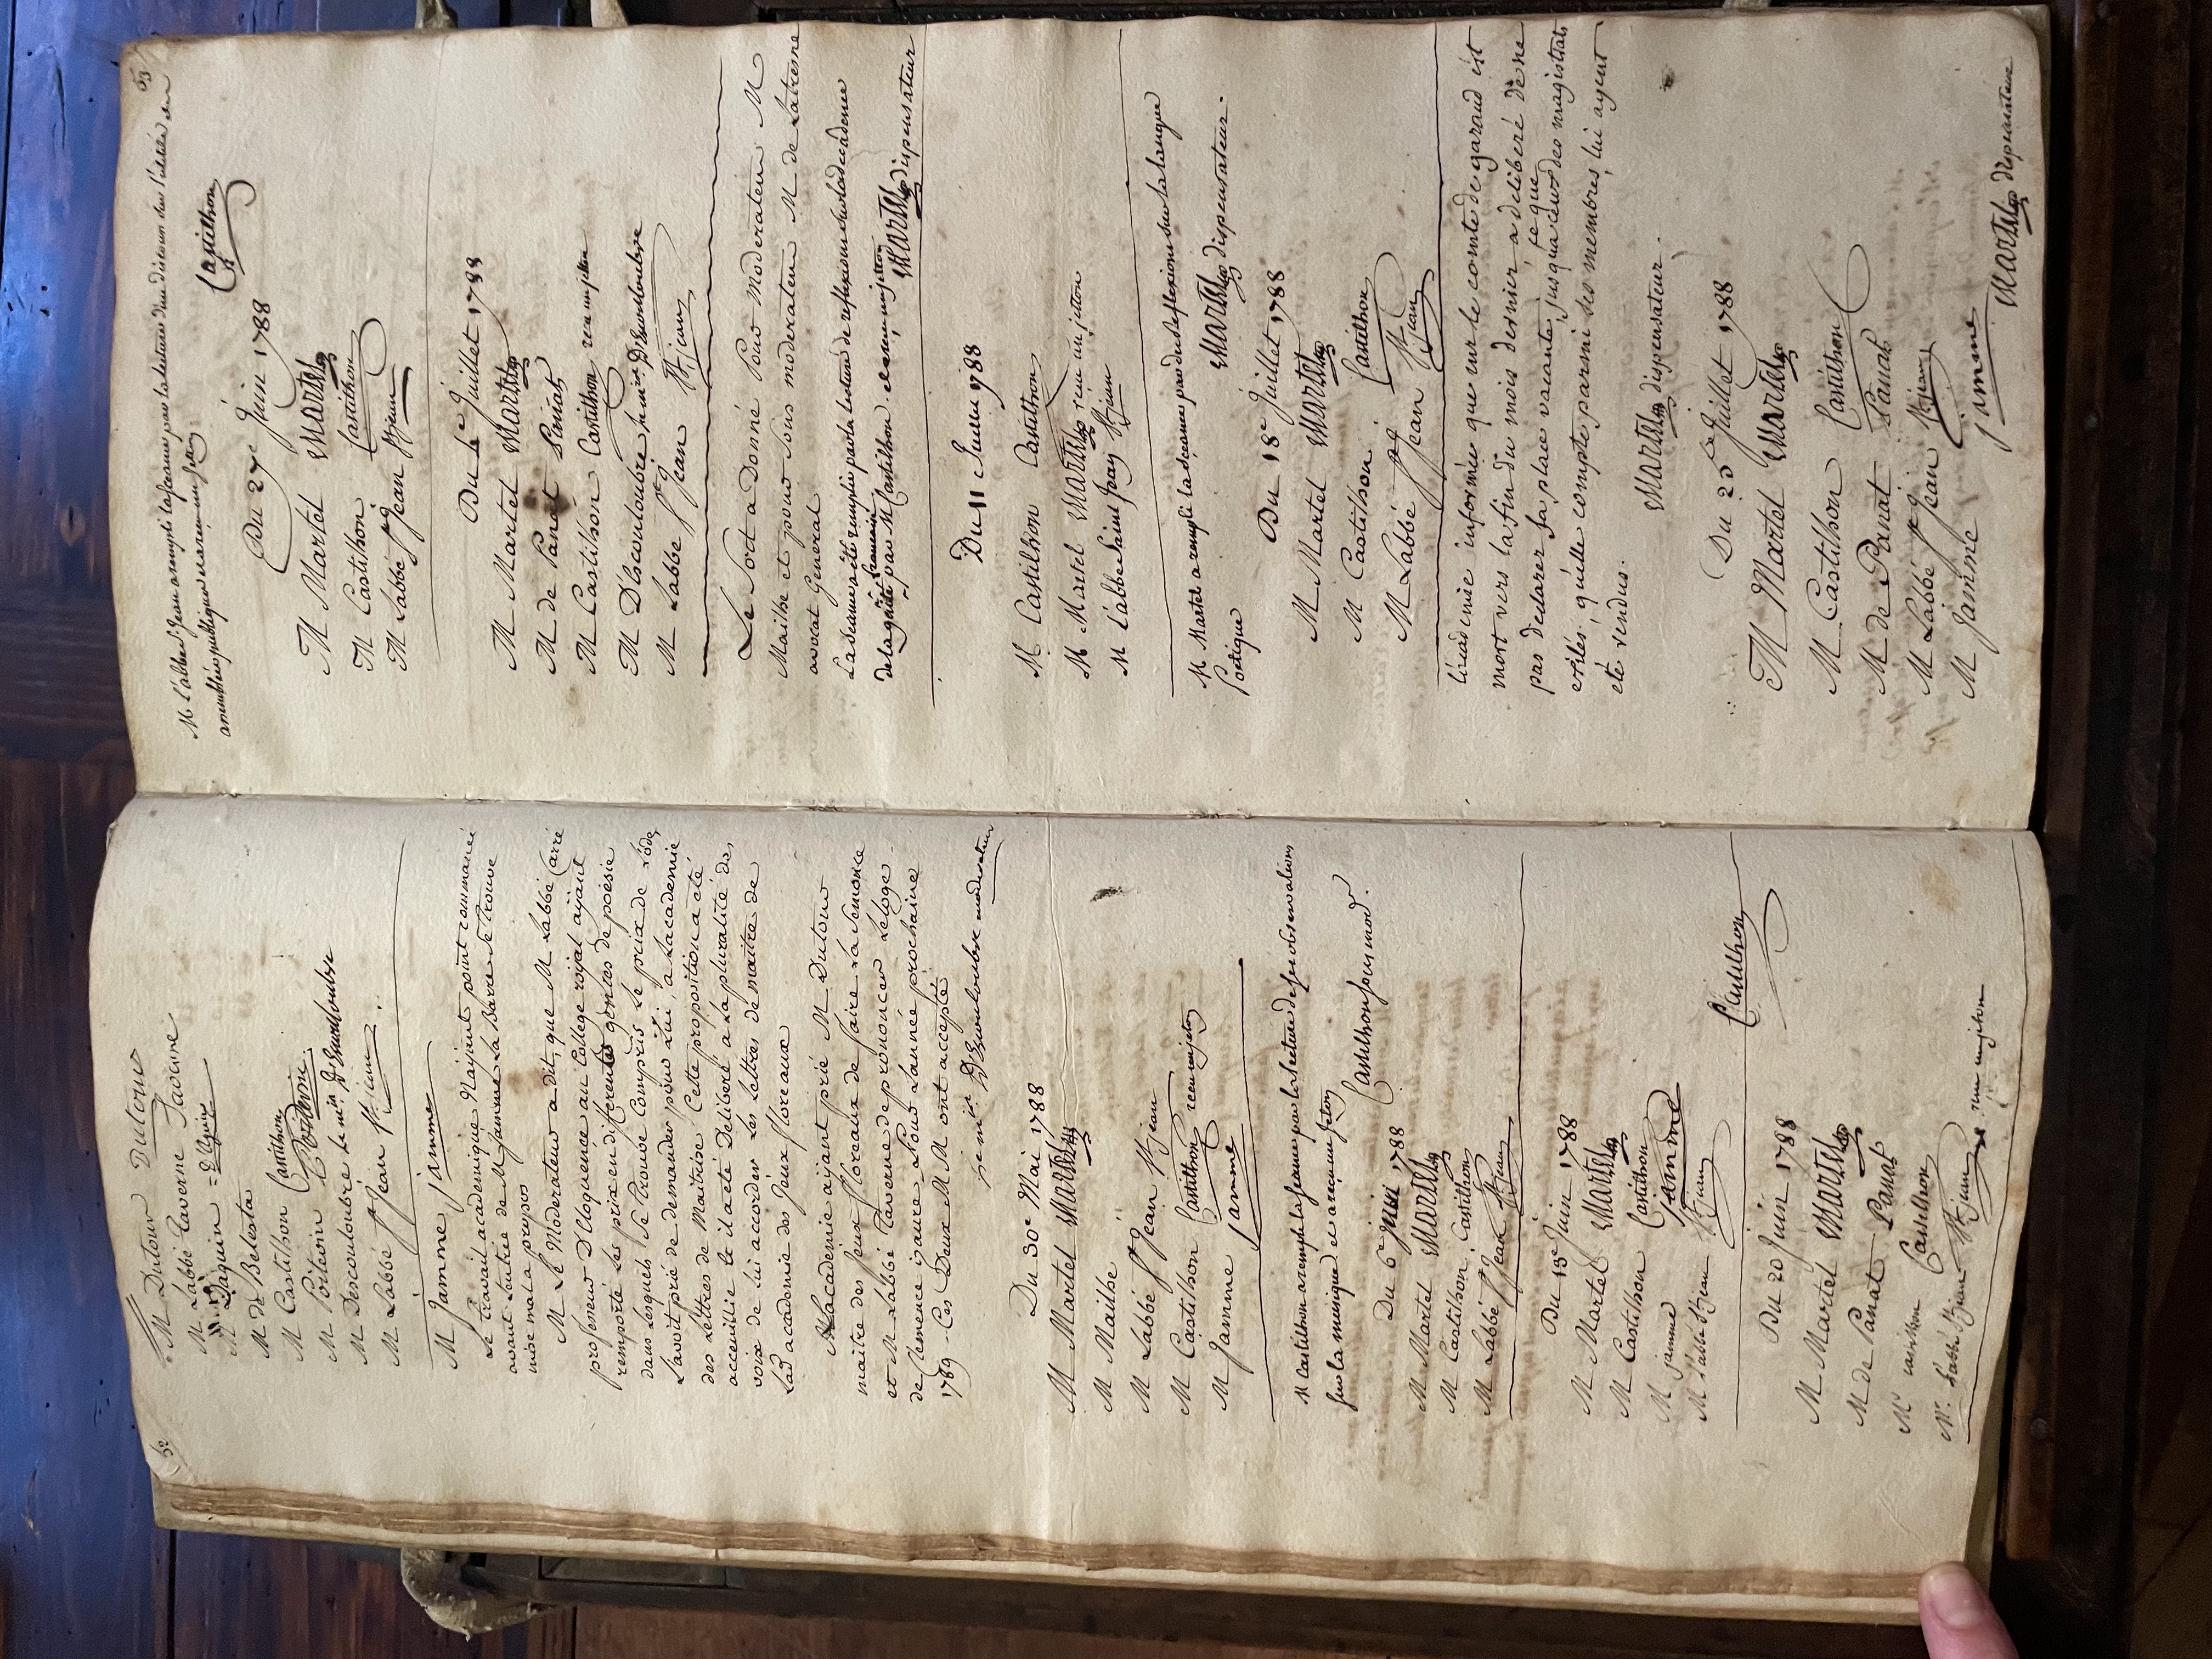 62
M Dutour Dutour
M Labbé Taverne Taverne
M Daguin d'Aguin
M de Belesta
M Castilhon Castilhon
M Poitevin Poitevin
M Descouloubre le m.is D'Escouloubre
M Labbé St Jean St. jean
M Jamme jamme
Le travail académique N'ajant point commancé
avant L'entrée de M Jamme La Barre se trouve
mise mal a propos
M Le Moderateur a dit, que M Labbé Carré
professeur D'Eloquence au College royal ajant
remporté Les prix en differents genres de poesie
dans Lesquels se trouve Compris Le prix de L'ode,
L'avoit prié de demander pour Lui, a Lacademie
des Lettres de Maitrise Cette proposition a eté
acceuillie et il a eté Deliberé a La pluralité des
voix de lui accorder Les Lettres de maitre de
Lad academie des Jeux floreaux
Lacademie ajant prié M Dutour
maitre des Jeux floreaux de faire La Semonce
et M Labbé Taverne de prononcer Leloge
de Clemence isaure Pour Lannée prochaine
1789 - Ces Deux M M ont accepté
D'Escouloubre moderateur
Du 30e Mai 1788
M Martel Martel
M Mailhe
M Labbé St Jean St jean
M Castilhon Castilhon recu un jeton
M Jamme jamme
M Castilhon a rempli la seance par la lecture de ses observations
sur la musique et a reçu un jeton
Castilhon sous mod.r
Du 6e juin 1788
M Martel Martel
M Castilhon Castilhon
M Labbé St Jean St. jean
Du 13e Juin 1788
M Martel Martel
M Castilhon Castilhon
M jamme jamme
M L'abbé St jean St. jean
Castilhon
Du 20 Juin 1788
M Martel Martel
M de Panat Panat
Mr castilhon Castilhon
Mr. L'abbé St jean St. jean a recu un jetton
63
M l'abbé St. Jean a rempli la seance par la lecture d'un discours sur l'utilité des
assemblées publiques et a reçu un jetton
Castilhon
Du 27e Juin 1788
M Martel Martel
M Castilhon Castilhon
M Labbé St Jean St jean
Du 4e Juillet 1788
M Martel Martel
M de Panat Panat
M Castilhon Castilhon recu un jetton
M D'Escouloubre D'Escouloubre
M Labbé St Jean St. jean
Le Sort a Donné Pour Moderateur M
Mailhe et pour sous moderateur M de Latresne
avocat General
La seance a eté remplie par la lecture de reflexions sur la decadence
de la gaité francaise par M Castilhon. il a reçu un jetton
Martel dispensateur
Du 11 Juin 1788
M Castilhon Castilhon
M Martel Martel recu un jetton
M L'abbé Saint Jean St. jean
M Martel a rempli la séance par des reflexions sur la langue
Poetique
Martel dispensateur.
Du 18e Juillet 1788
M Martel Martel
M Castilhon Castilhon
M Labbé St Jean St. jean
l'academie informée que mr le comte de garaud est
mort vers la fin du mois dernier a deliberé de ne
pas declarer sa place vacante jusqua ce que ceux des magistrats
exilés, qu'elle compte parmi ses membres, lui ayent
eté rendus.
Martel dispensateur.
Du 25e Juillet 1788
M Martel Martel
M Castilhon Castilhon
M de Panat Panat
M Labbé St Jean St jean
M Jamme jamme
Martel dispensateur